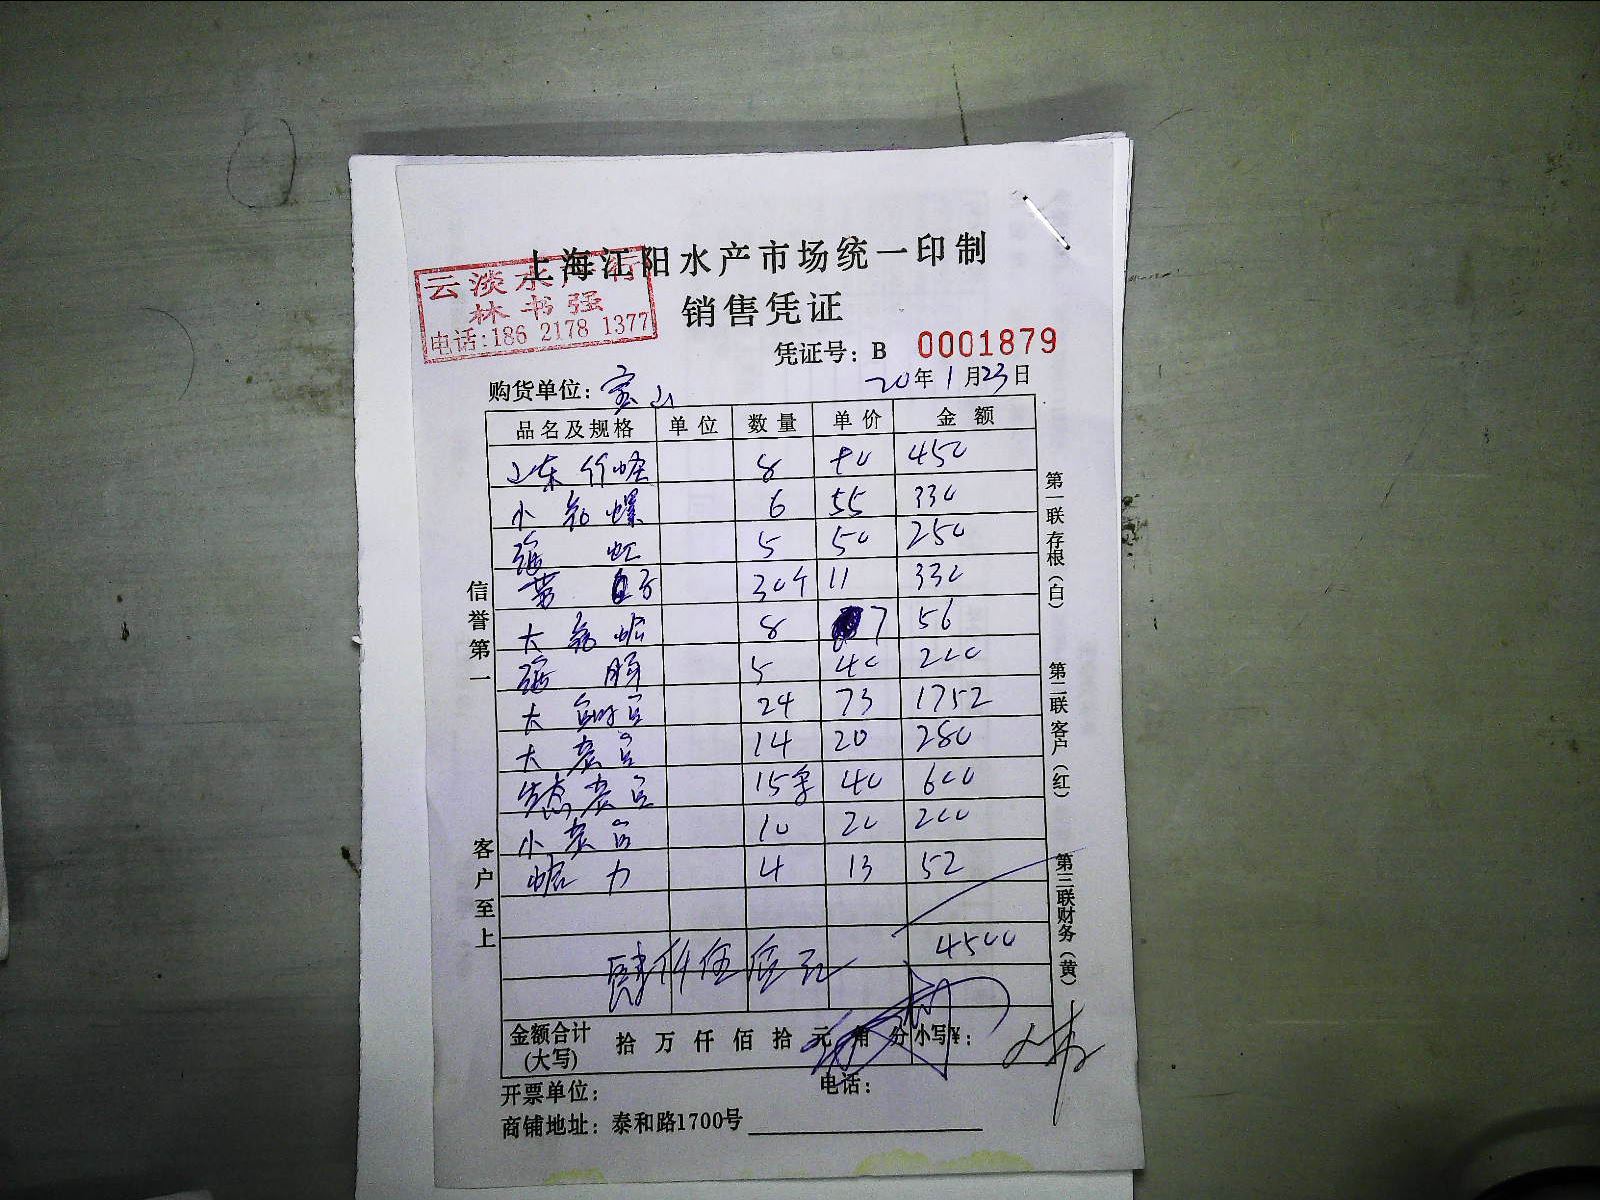 上海江阳水产市场统一印制
云淡水产行
林书强
电话:186 2178 1377
销售凭证
凭证号：B 0001879
购货单位：宝山 20年1月23日
品名及规格 单位 数量 单价 金额
山东竹蛏 8 450
小花螺 6 55 330
强虹 5 50 250
30个 11 330
大 8 7 56
强 5 40 200
大 24 73 1752
大 14 20 280
生态 15 40 600
小 10 20 200
4 13 52
4500
肆仟伍佰元
金额合计(大写) 拾 万 仟 佰 拾 元 角 分 小写¥：
开票单位： 电话：
商铺地址：泰和路1700号
信誉第一
客户至上
第一联存根(白)
第二联客户(红)
第三联财务(黄)